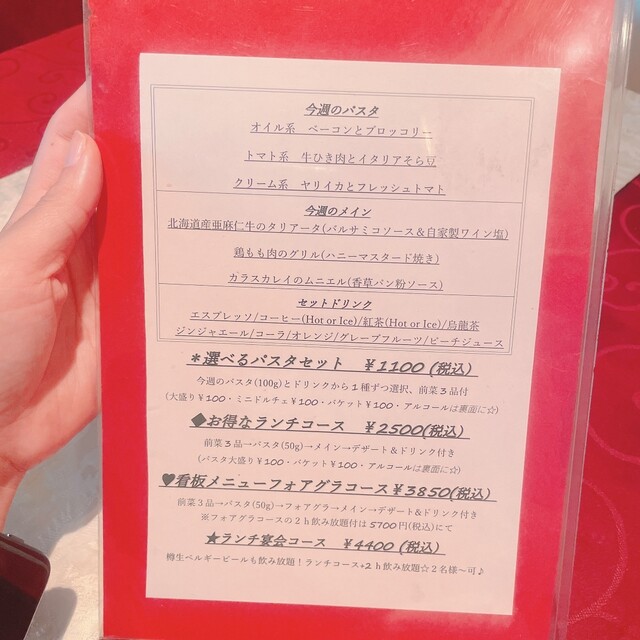 今週のパスタ
オイル系　ベーコンとブロッコリー
トマト系　牛ひき肉とイタリアそら豆
クリーム系　ヤリイカとフレッシュトマト
今週のメイン
北海道産亜麻仁牛のタリアータ(バルサミコソース＆自家製ワイン塩)
鶏もも肉のグリル(ハニーマスタード焼き)
カラスカレイのムニエル(香草パン粉ソース)
セットドリンク
エスプレッソ/コーヒー(Hot or Ice)/紅茶(Hot or Ice)/烏龍茶
ジンジャエール/コーラ/オレンジ/グレープフルーツ/ピーチジュース
＊選べるパスタセット　￥1100 (税込)
今週のパスタ(100g)とドリンクから１種ずつ選択、前菜３品付
(大盛り￥100・ミニドルチェ￥100・バケット￥100・アルコールは裏面に☆)
◆お得なランチコース　￥2500(税込)
前菜３品→パスタ(50g)→メイン→デザート＆ドリンク付き
(パスタ大盛り￥100・バケット￥100・アルコールは裏面に☆)
♥看板メニューフォアグラコース￥3850(税込)
前菜３品→パスタ(50g)→フォアグラ→メイン→デザート&ドリンク付き
※フォアグラコースの２ｈ飲み放題付は5700円(税込)にて
★ランチ宴会コース　￥4400 (税込)
樽生ベルギービールも飲み放題！ランチコース+2ｈ飲み放題☆２名様～可♪